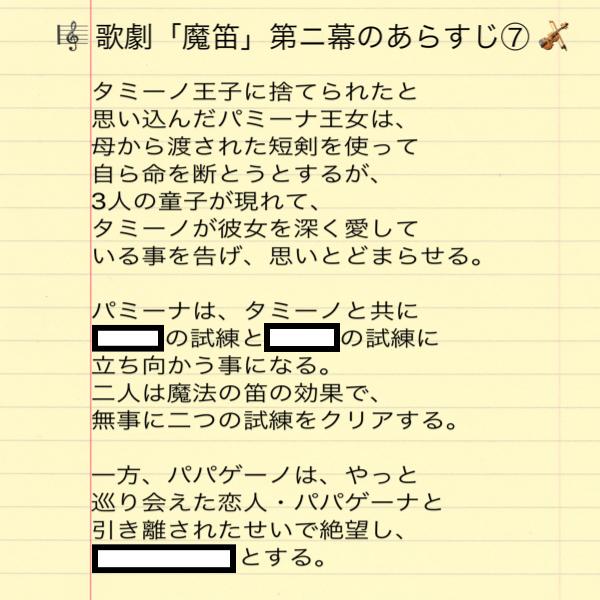 🎼 歌劇「魔笛」第二幕のあらすじ⑦ 🎻
タミーノ王子に捨てられたと
思い込んだパミーナ王女は、
母から渡された短剣を使って
自ら命を断とうとするが、
3人の童子が現れて、
タミーノが彼女を深く愛して
いる事を告げ、思いとどまらせる。
パミーナは、タミーノと共に
の試練との試練に
立ち向かう事になる。
二人は魔法の笛の効果で、
無事に二つの試練をクリアする。
一方、パパゲーノは、やっと
巡り会えた恋人・パパゲーナと
引き離されたせいで絶望し、
とする。